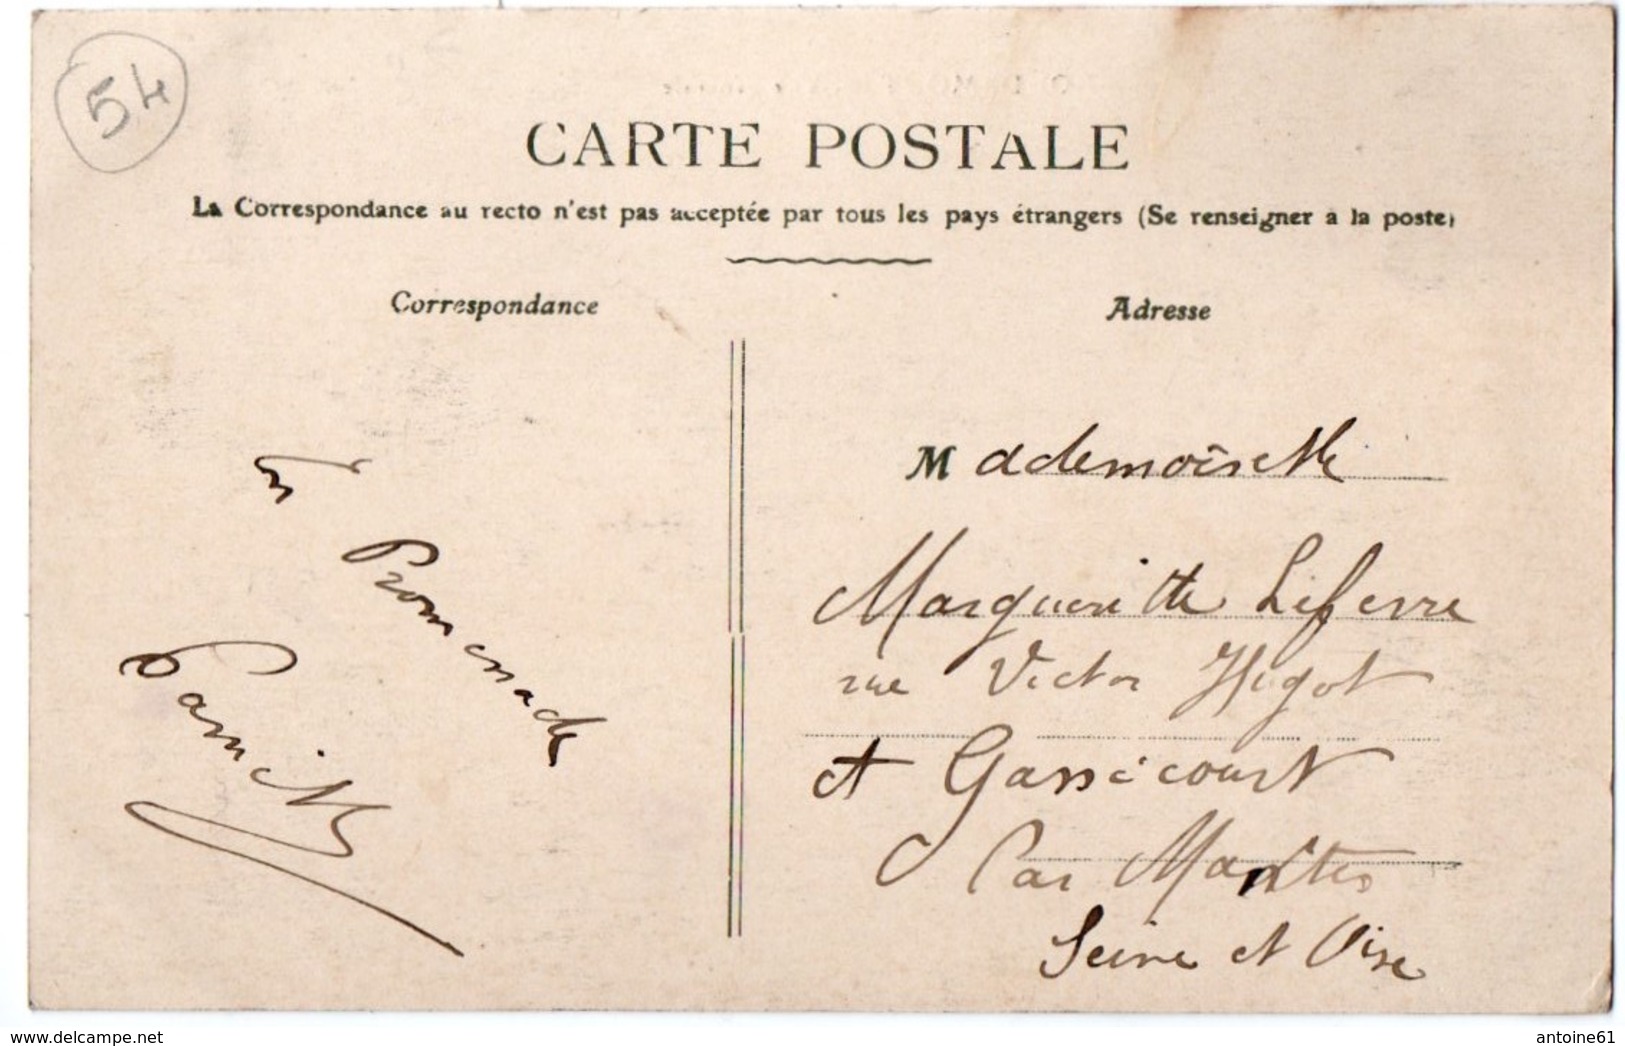 54
CARTE POSTALE
La Correspondance au recto n'est pas acceptée par tous les pays étrangers (Se renseigner a la poste)
Correspondance
Adresse
En
Promenade
Camille
Mademoiselle
Marguerite Lefevre
rue Victor Hugot
et Gassicourt
Par Mantes
Seine et Oise
www.delcampe.net
antoine61